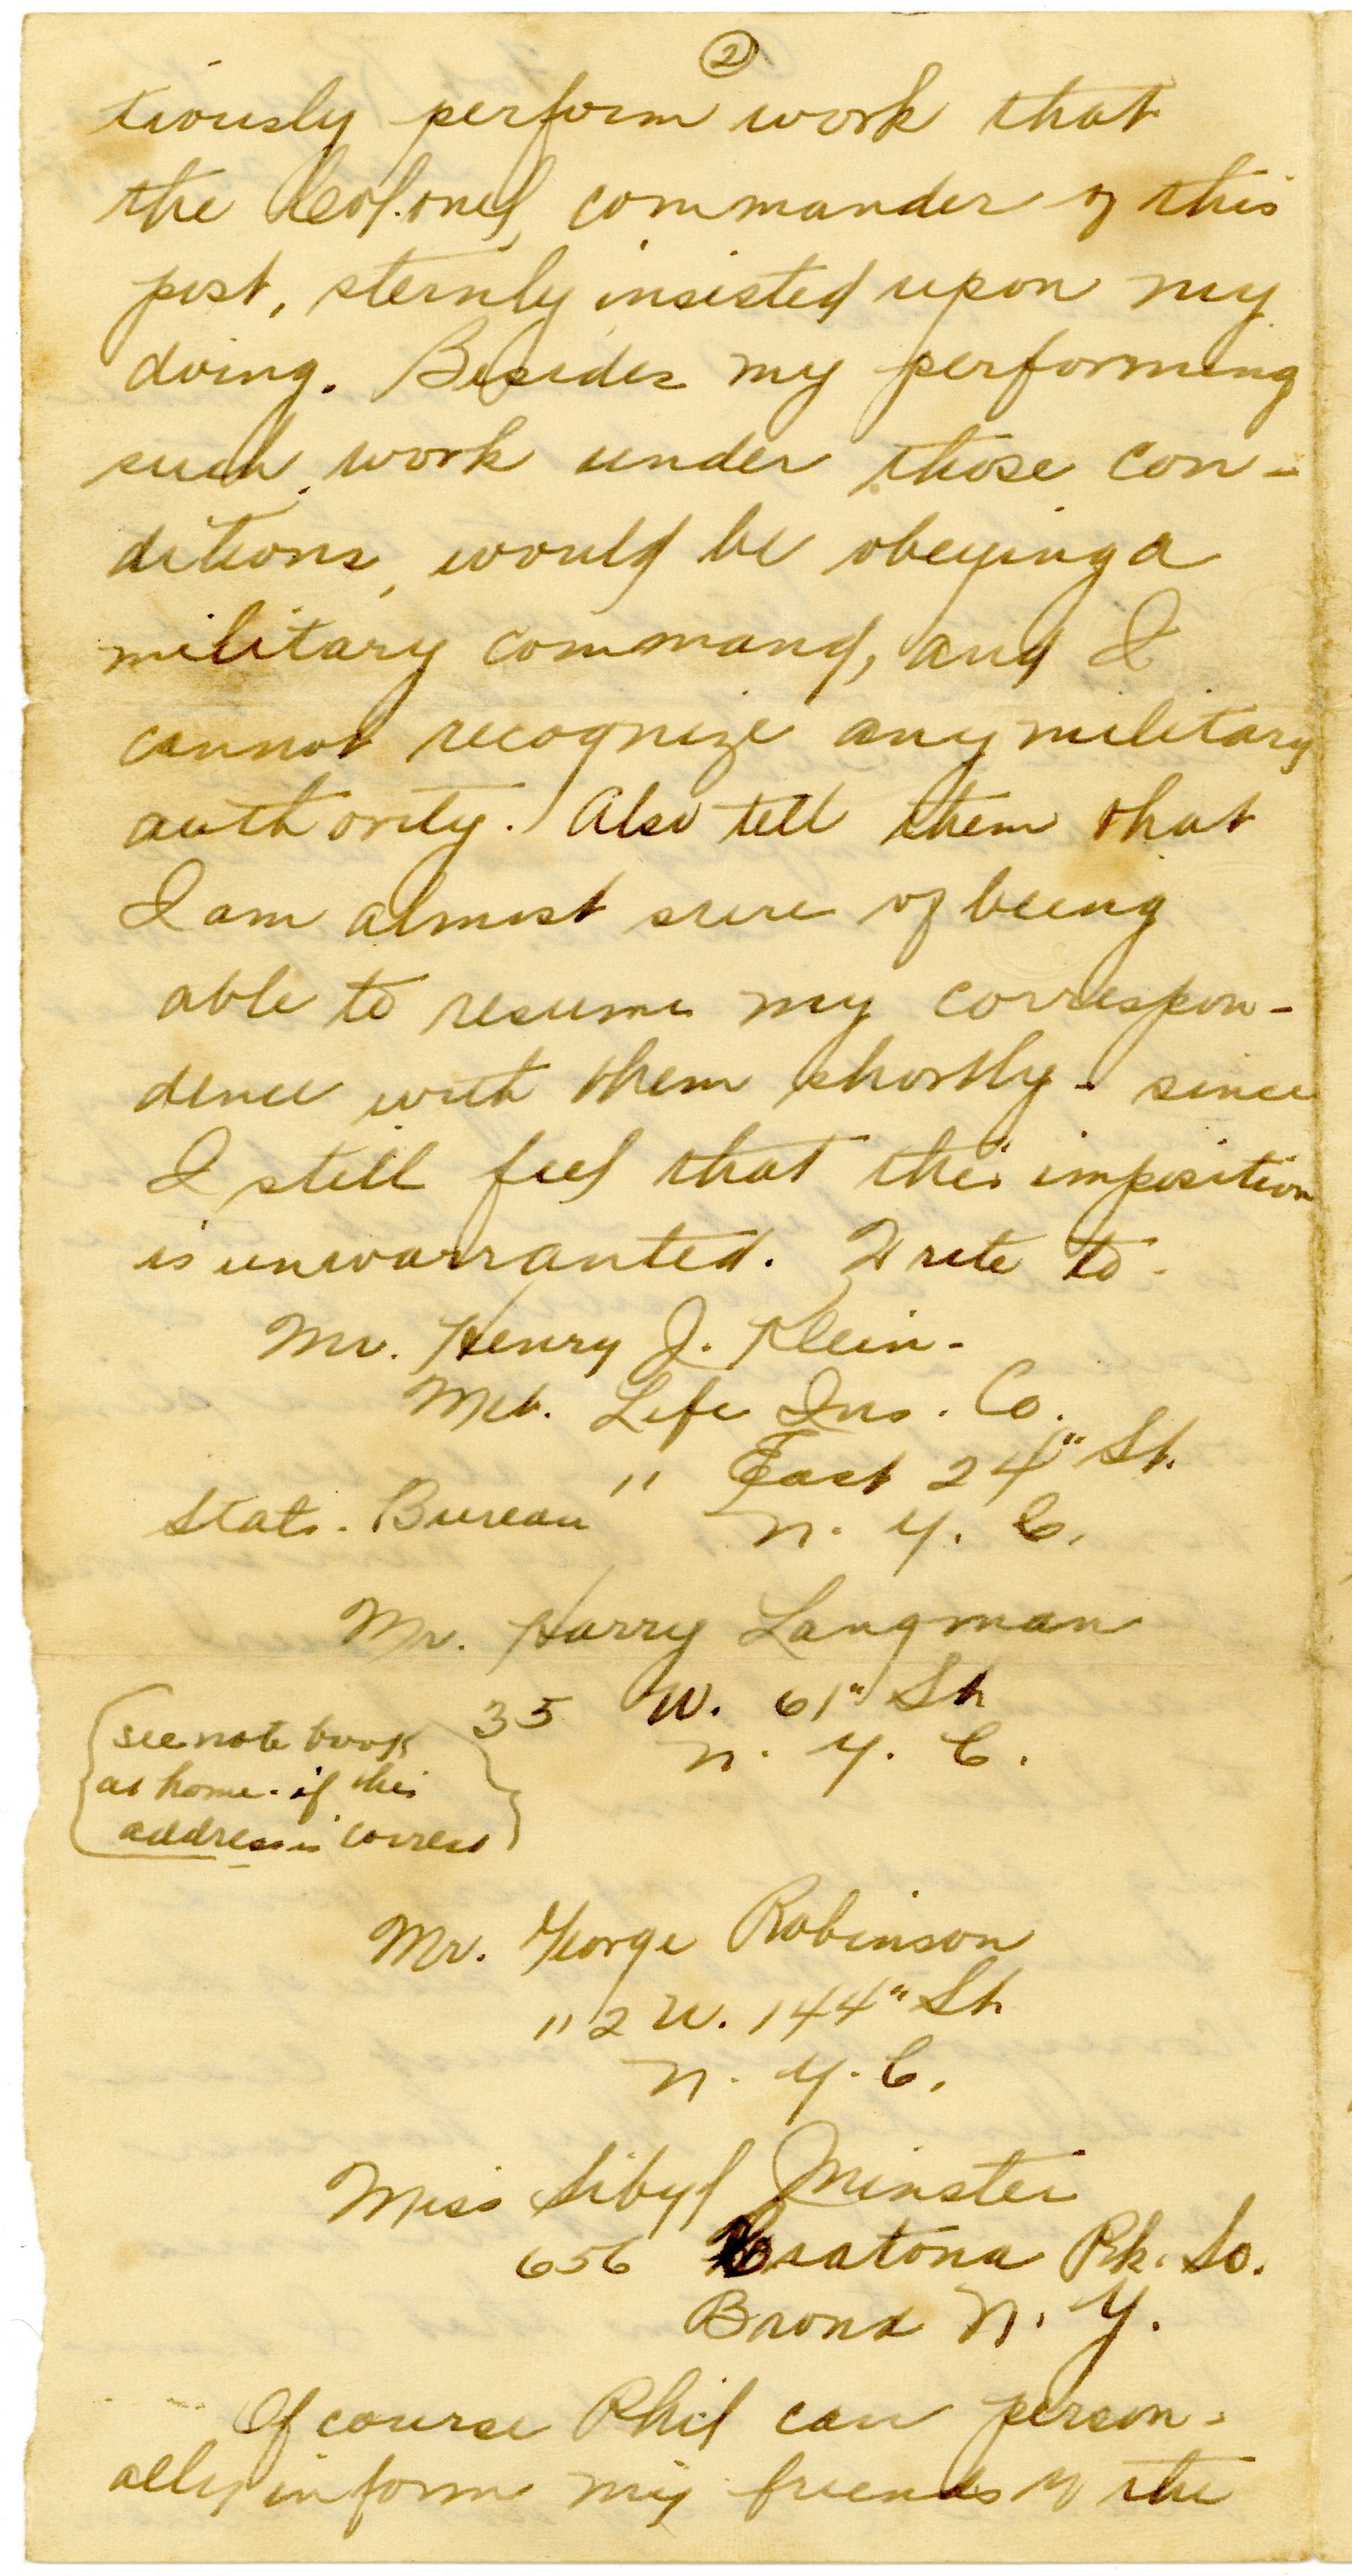 ②
tiously perform work that
the Colonel, commander of this
post, sternly insisted upon my
doing. Besides my performing
such work under those con-
ditions, would be obeying a
military command, and I
cannot recognize any military
authority. Also tell them that
I am almost sure of being
able to resume my correspon-
dence with them shortly - since
I still feel that this imposition
is unwarranted. Write to -
Mr. Henry J. Klein -
Met. Life Ins. Co.
" East 24" St.
Stats. Bureau N. Y. C.
Mr. Harry Langman
35 W. 61" St
N. Y. C.
see note book
at home - if this
address is correct
Mr. George Robinson
112 W. 144" St
N. Y. C.
Miss Sibyl Minster
656 Crotona Pk. So.
Bronx N. Y.
Of course Phil can person-
ally inform my friends of the